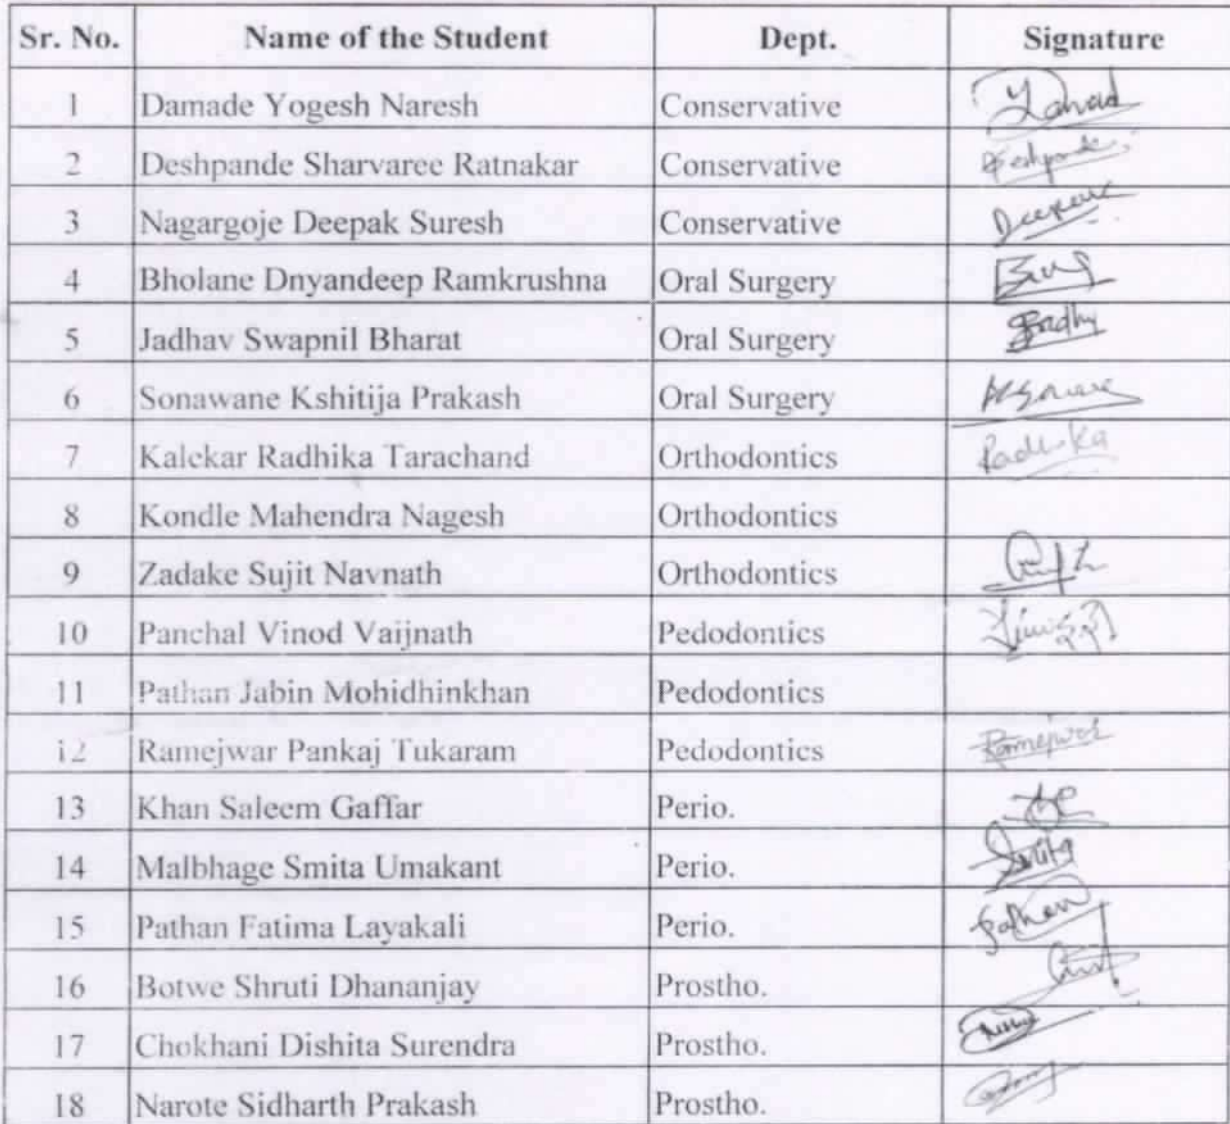 Sr. No. Name of the Student Dept. Signature
1 Damade Yogesh Naresh Conservative
2 Deshpande Sharvaree Ratnakar Conservative Deshpande
3 Nagargoje Deepak Suresh Conservative Deepak
4 Bholane Dnyandeep Ramkrushna Oral Surgery
5 Jadhav Swapnil Bharat Oral Surgery
6 Sonawane Kshitija Prakash Oral Surgery
7 Kalekar Radhika Tarachand Orthodontics Radhika
8 Kondle Mahendra Nagesh Orthodontics
9 Zadake Sujit Navnath Orthodontics
10 Panchal Vinod Vaijnath Pedodontics
11 Pathan Jabin Mohidhinkhan Pedodontics
12 Ramejwar Pankaj Tukaram Pedodontics Ramejwar
13 Khan Saleem Gaffar Perio.
14 Malbhage Smita Umakant Perio. Smita
15 Pathan Fatima Layakali Perio. Pathan
16 Botwe Shruti Dhananjay Prostho.
17 Chokhani Dishita Surendra Prostho.
18 Narote Sidharth Prakash Prostho.